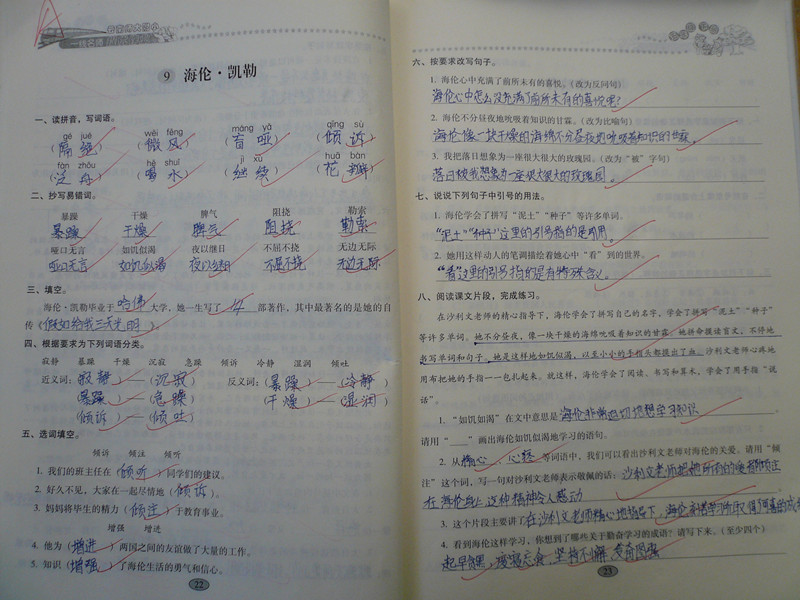 9 海伦·凯勒
一、读拼音，写词语。
gé jué wēi fēng máng yǎ qīng sù
（隔绝）（微风）（盲哑）（倾诉）
fàn zhōu hē shuǐ jì xù huā bàn
（泛舟）（喝水）（继续）（花瓣）
二、抄写易错词。
暴躁 干燥 脾气 阻挠 勒索
暴躁 干燥 脾气 阻挠 勒索
哑口无言 如饥似渴 夜以继日 不屈不挠 无边无际
哑口无言 如饥似渴 夜以继日 不屈不挠 无边无际
三、填空。
海伦·凯勒毕业于哈佛大学，她一生写了14部著作，其中最著名的是她的自
传《假如给我三天光明》。
四、根据要求为下列词语分类。
寂静 暴躁 干燥 沉寂 急躁 倾诉 冷静 湿润 倾吐
近义词：（寂静）—（沉寂） 反义词：（暴躁）—（冷静）
（暴躁）—（急躁） （干燥）—（湿润）
（倾诉）—（倾吐）
五、选词填空。
倾诉 倾注 倾听
1. 我们的班主任在（倾听）同学们的建议。
2. 好久不见，大家在一起尽情地（倾诉）。
3. 妈妈将毕生的精力（倾注）于教育事业。
增强 增进
4. 他为（增进）两国之间的友谊做了大量的工作。
5. 知识（增强）了海伦生活的勇气和信心。
22
六、按要求改写句子。
1. 海伦心中充满了前所未有的喜悦。（改为反问句）
海伦心中怎么没充满了前所未有的喜悦呢？
2. 海伦不分昼夜地吮吸着知识的甘霖。（改为比喻句）
海伦像一块干燥的海绵不分昼夜的吮吸着知识的甘霖。
3. 我把落日想象为一座很大很大的玫瑰园。（改为“被”字句）
落日被我想象为一座很大很大的玫瑰园。
七、说说下列句子中引号的用法。
1. 海伦学会了拼写“泥土”“种子”等许多单词。
“泥土”“种子”这里的引号指的是引用。
2. 她用这样动人的笔调描绘着她心中“看”到的世界。
“看”这里的引号指的是有特殊含义。
八、阅读课文片段，完成练习。
在沙利文老师的精心指导下，海伦学会了拼写自己的名字，学会了拼写“泥土”“种子”
等许多单词。她不分昼夜，像一块干燥的海绵吮吸着知识的甘霖。她拼命摸读盲文，不停地
书写单词和句子，她是这样地如饥似渴，以至小小的手指头都摸出了血。沙利文老师心疼地
用布把她的手指一一包扎起来。就这样，海伦学会了阅读、书写和算术，学会了用手指“说
话”。
1. “如饥如渴”在文中意思是海伦非常迫切地想学习知识。
请用“____”画出海伦如饥似渴地学习的语句。
2. 从精心、心疼等词语中，我们可以看出沙利文老师对海伦的关爱。请用“倾
注”这个词，写一句对沙利文老师表示敬佩的话：沙利文老师把她所有的爱都倾注
在海伦身上，这种精神令人感动
3. 这个片段主要讲了在沙利文老师精心地指导下，海伦刻苦学习
4. 看到海伦这样学习，你想到了哪些关于勤奋学习的成语？请写下来。（至少四个）
起早贪黑，废寝忘食，坚持不懈，发奋图强
23